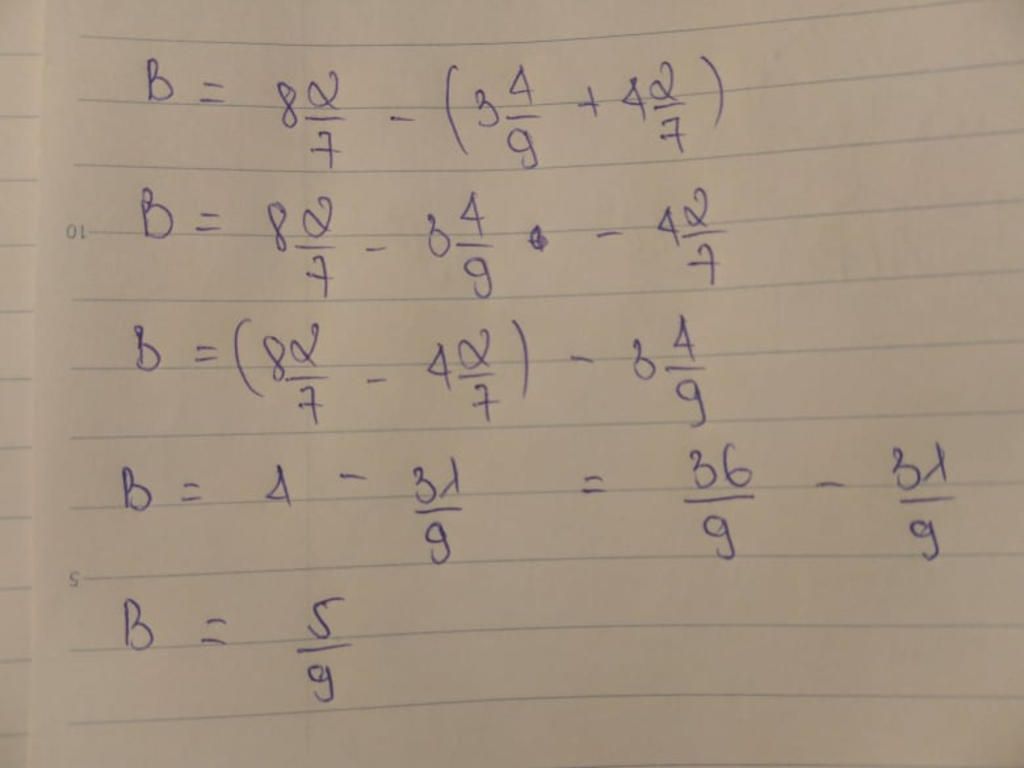 B = 8 2/7 - (3 4/9 + 4 2/7)
B = 8 2/7 - 3 4/9 - 4 2/7
B = (8 2/7 - 4 2/7) - 3 4/9
B = 4 - 31/9 = 36/9 - 31/9
B = 5/9
10
5